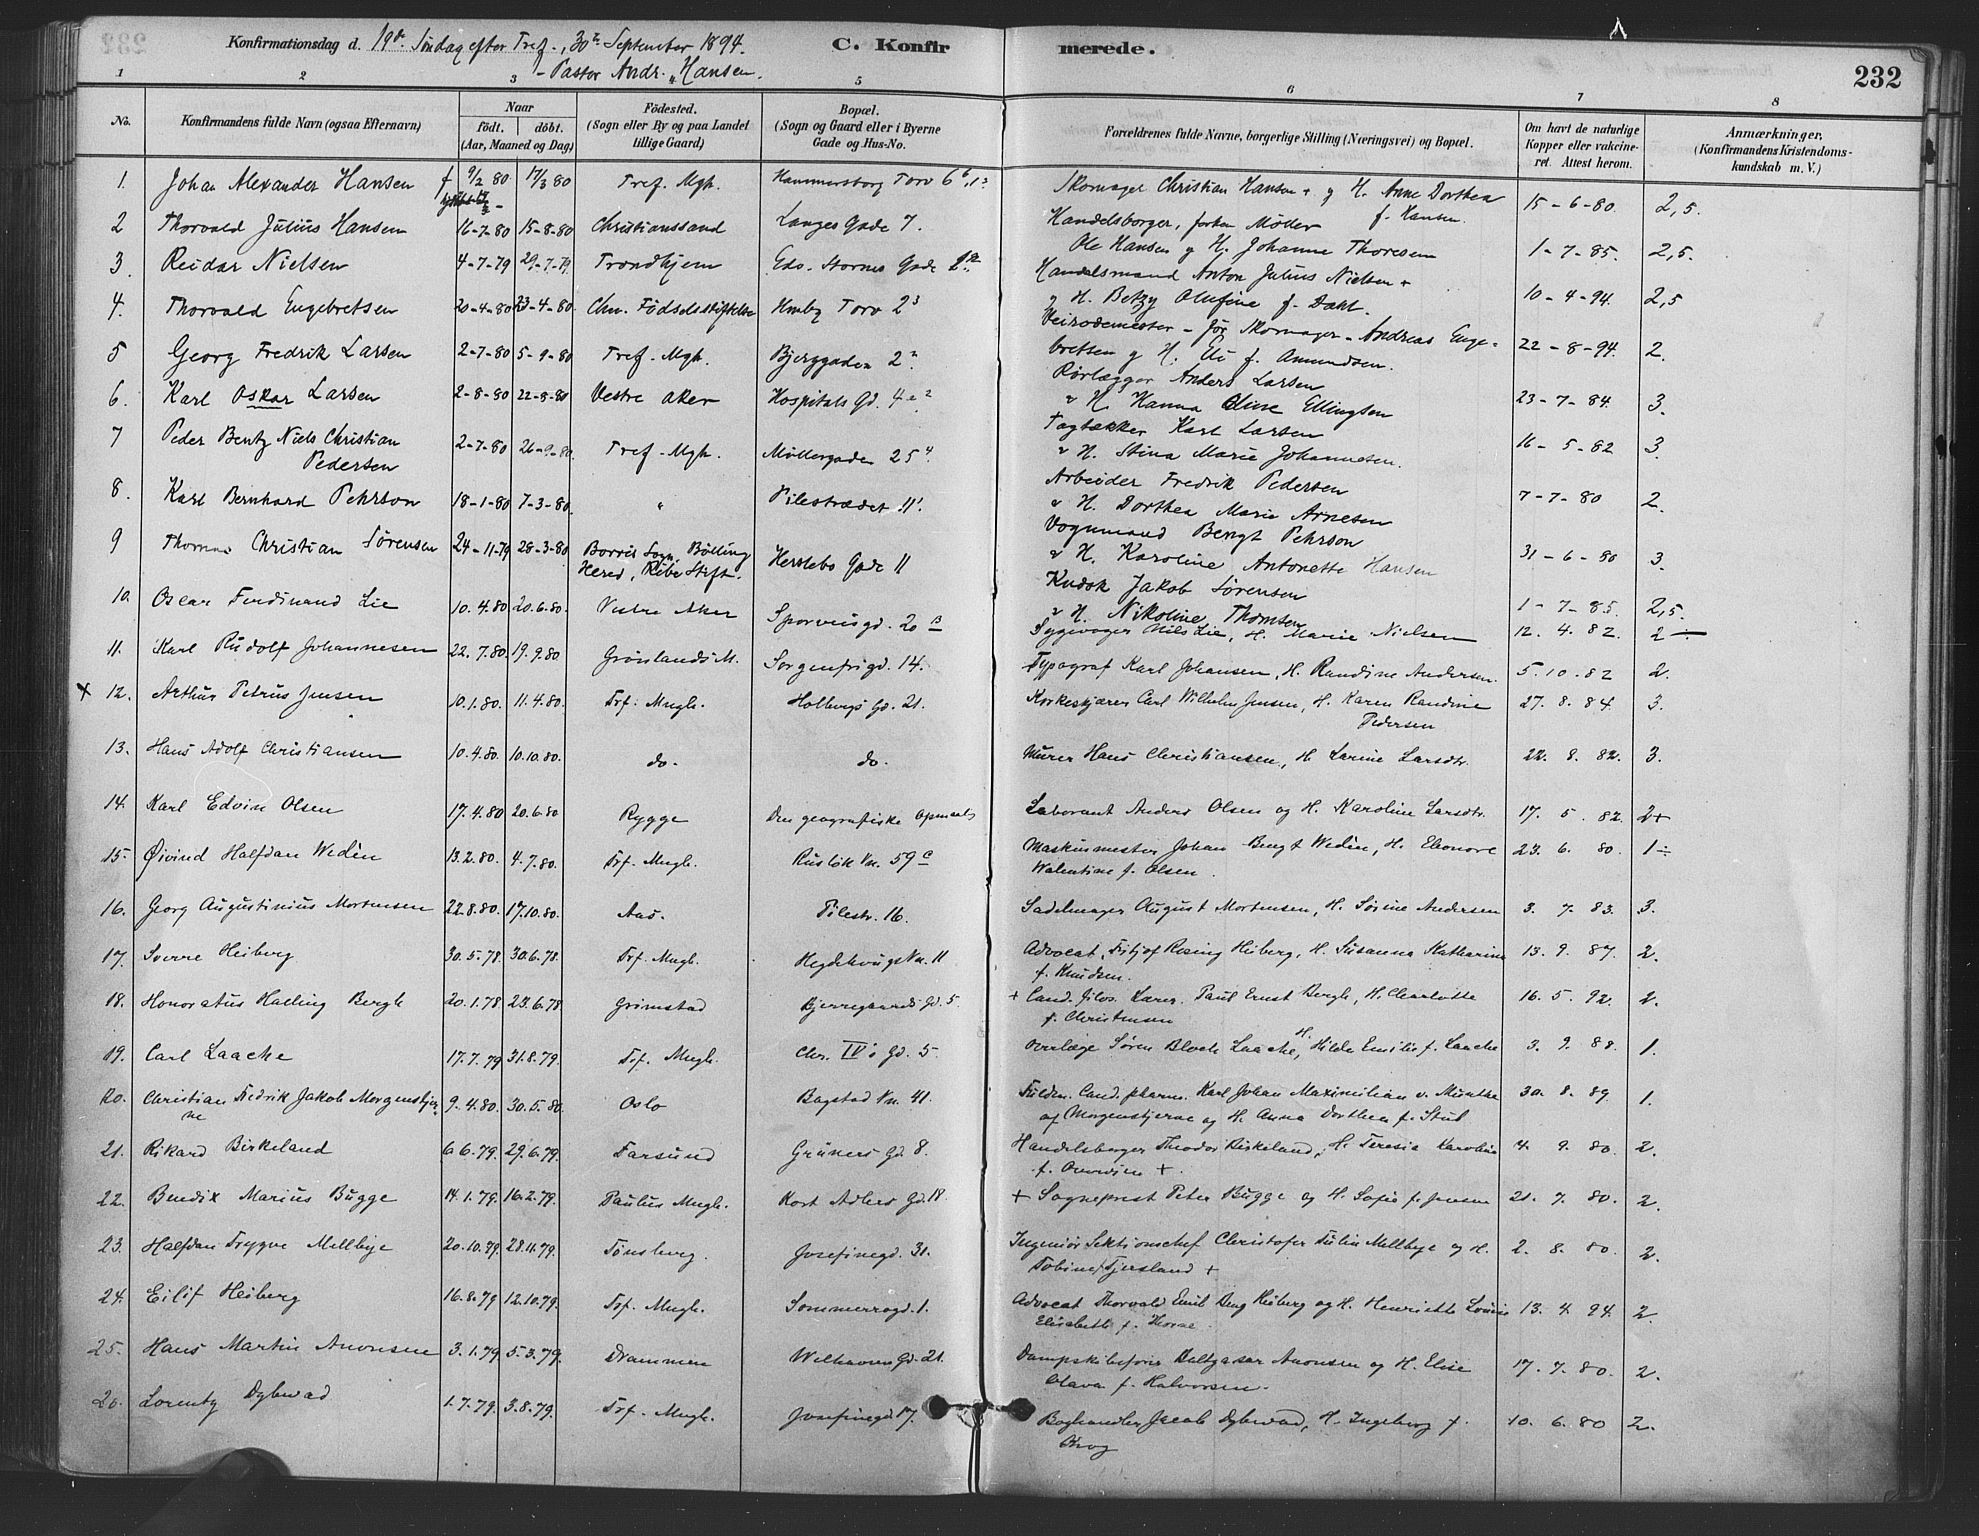 232
Konfirmationsdag d. 19de Søndag efter Tref., 30te September 1894. C. Konfirmerede.
- Pastor Andr. Hansen.
1 2 3 5 6 7 8
No.
Konfirmandens fulde Navn (ogsaa Efternavn)
Naar
födt. döbt.
(Aar, Maaned og Dag)
Födested.
(Sogn eller By og paa Landet tillige Gaard)
Bopæl.
(Sogn og Gaard eller i Byerne Gade og Hus-No.
Forældrenes fulde Navne, borgerlige Stilling (Næringsvei) og Bopæl.
Om havt de naturlige Kopper eller vakcineret. Attest herom.
Anmærkninger,
(Konfirmandens Kristendomskundskab m. V.)
1. Johan Alexander Hansen f 9/2 80 17/3 80 Tref. Mgh. Hammersborg Torv 6 Skomager Christian Hansen + g H. Anne Dorthea f. Hansen. 15-6-80 2,5.
2 Thorvald Julius Hansen 16-7-80 15-8-80 Christianssand Langes Gade 7. Handelsborger, Møller
Ole Hansen g H. Johanne Thoresen 1-7-85. 2,5.
3. Reidar Nielsen 4-7-79 29-7-79. Trondhjem Edv. Storms Gade Handelsmand Anton Julius Nielsen +
g H. Betzy Olufine f. Dahl. 10-4-94. 2,5
4. Thorvald Engebretsen 20-4-80 23-4-80. Chra. Födselsstiftelse Hmbg Torv 2³ Veirodemester - Skomager - Andreas Engebretsen g H. Eli f. Amundsen. 22-8-94. 2.
5 Georg Fredrik Larsen 2-7-80 5-9-80 Tref. Mgh. Bjerggaden 2 Rørlægger Anders Larsen
H. Hanna Oline Ellingsen 23-7-84. 3.
6. Karl Oskar Larsen 2-8-80 22-8-80 Vestre Aker Hospitals Gd. 4 Tagtækker Karl Larsen
H. Stina Marie Johannesen. 16-5-82 3.
7 Peder Bentz Niels Christian Pedersen 2-7-80 26-9-80. Tref. Mgh. Møllergaden 25 Arbeider Fredrik Pedersen
H. Dorthea Marie Arnesen 7-7-80 2.
8. Karl Bernhard Pehrson 18-1-80 7-3-80. " Pilestrædet 11 Vognmand Bengt Pehrson
H. Karoline Antonette Hansen 31-6-80 3.
9 Thomas Christian Sørensen 24-11-79 28-3-80 Borris Sogn, Bölling Hered, Ribe Stift. Herslebs Gade 11 Kudsk Jakob Sørensen
H. Nikoline Thomsen 1-7-85. 2,5.
10. Oscar Ferdinand Lie 10.4.80 20.6.80. Vestre Aker Sporveisgd. 20 B Nils Lie, H. Marie Nielsen 12. 4. 82. 2 -
11. Karl Rudolf Johannesen 22.7.80 19.9.80 Grønlands M. Sorgenfrigd. 14. Typograf Karl Johansen, H. Randine Andersen. 5.10.82 2.
x 12. Arthur Petrus Jensen 10.1.80. 11.4.80. Trf. Mngh. Holbergs Gd. 21. Korkeskjærer Carl Wilhelm Jensen, H. Karen Randine Pedersen 27. 8. 84. 3.
13. Hans Adolf Christiansen 10.4.80. 10.10.80. do. do. Murer Hans Christiansen, H. Karine Larsdtr. 22. 8. 82. 3.
14. Karl Edvin Olsen 17.4.80 20.6.80 Rygge Den geografiske Opmaal Laborant Anders Olsen og H. Karoline Larsdtr. 17. 5. 82. 2+
15. Øivind Halfdan Wedén 13.2.80. 4.7.80. Trf. Mngh. Ruslök Vn. 59 c Maskinmester Johan Bengt Wedén, H. Eleonore Walentine f. Olsen. 23. 6. 80. 1÷
16. Georg Augustinius Mortensen 22.8.80. 17.10.80. Aas. Pilestr. 16. Sadelmager August Mortensen, H. Sørine Andersen 3. 7. 83. 3.
17. Sverre Heiberg 30.5.78. 30.6.78. Trf. Mngh. Hegdehaugs Vn. 11 Advocat Fritjof Rosing Heiberg, H. Susanna Katharina f. Knudsen. 13. 9. 87. 2.
18. Honoratus Halling Bergh 20.1.78 23.6.78 Grimstad Bjerregaards Gd. 5. + Cand. filos. Paul Ernst Bergh, H. Charlotte f. Christensen 16. 5. 92. 2.
19. Carl Laache 17.7.79 31.8.79. Trf. Mngh. Chr. IV's Gd. 5. Overlæge Søren Bloch Laache, H. Hilda Emilie f. Laache 3. 9. 88. 1.
20. Christian Fredrik Jakob Morgenstjerne 9.4.80. 30.5.80. Oslo Bogstad Vn. 41. Fuldm. Cand. pharm. Karl Johan Maximilian v. Munthe af Morgenstjerne og H. Anna Dorthea f. Stub 30. 8. 89. 1.
21. Rikard Birkeland 6.6.79. 29.6.79. Farsund Grüners Gd. 8. Handelsborger Theodor Birkeland, H. Teresia Karoline f. + 4. 9. 80. 2.
22. Bendix Marius Bugge 14.1.79. 16.2.79. Paulus Mngh. Kort Adlers Gd. 18 + Sogneprest Peter Bugge og H. Sofie f. Jensen 21. 7. 80. 2.
23. Halfdan Trygve Mellbye 20.10.79. 28.11.79. Tönsberg. Josefinegd. 31. Ingeniör Sektionschef Christofer Tullin Mellbye og H. Tobine Tjersland + 2. 8. 80. 2.
24. Eilif Heiberg 16.8.79 12.10.79. Trf. Mngh. Sommerrogd. 1. Advocat Thorvald Emil Heiberg og H. Henriette Louise Elisabeth f. Thorne. 13. 4. 94. 2.
25. Hans Martin Aronsen 3.1.79 5.3.79. Drammen Welhavens Gd. 21. Dampskibsfører Baltzasar Aronsen og H. Elise Olava f. Halvorsen. 17. 7. 80. 2.
26. Lorentz Dybwad 1.7.79. 3.8.79. Trf. Mngh. Josefinegd. 17. Boghandler Jacob Dybwad, H. Ingeborg f. Krog 10. 6. 80 2.